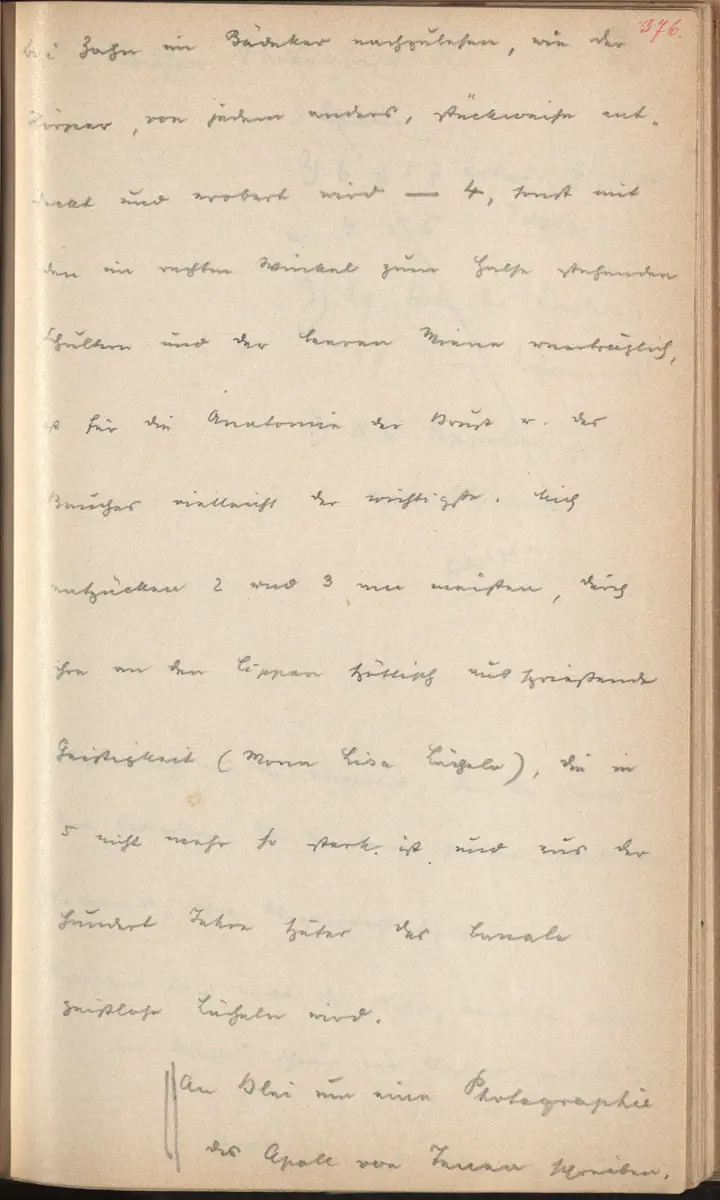 376.
bei Zahn im Bädeker nachzulesen, wie der
Körper, von jedem anders, stückweise ent-
deckt und erobert wird — 4, sonst mit
den im rechten Winkel zum Halse stehenden
Schultern und der leeren Miene unerträglich,
ist für die Anatomie der Brust u. des
Bauches vielleicht der wichtigste. Mich
entzücken 2 und 3 am meisten, durch
ihre an den Lippen göttlich aufsprießende
Geistigkeit (Mona Lisa Lächeln), die in
5 nicht mehr so stark ist und aus der
hundert Jahre später das banale
geistlose Lächeln wird.
An Blei um eine Photographie
des Apoll von Tenea schreiben.